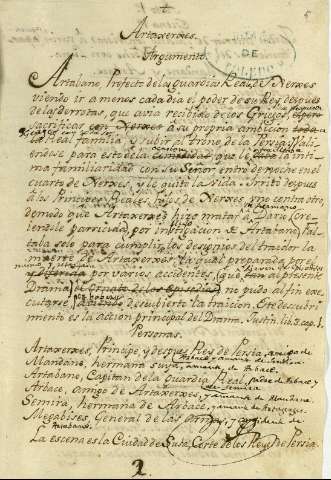 Artaxerxes.
Argumento.
Artabano, Prefecto de las guardias Reales de Xerxes
viendo ir a menos cada dia el poder de su Rey despues
de las derrotas, que avia recibido de los Griegos, espero
sacrificar con Xerxes a su propria ambicion toda
la Real familia y subir al trono de la Persia. Vali
endose para esto de la comodidad que le daba la inti
ma familiaridad con su Señor entró de noche en el
cuarto de Xerxes, y le quitó la vida. Irritó despues
a los Principes Reales hijos de Xerxes uno contra otro,
de modo que Artaxerxes hizo matar a Dario
creiendole parricida por instigacion de Artabano. Fal
taba solo para cumplir los designios del traidor la
muerte de Artaxerxes la qual preparada por el
y diferida por varios accidentes (que al presente
Drama el ornato de los Episodios) no pudo al fin exe
cutarse descubierta la traicion. Este descubri
miento es la action principal del Drama. Justin. lib. 3. cap. 1.
Personas.
Artaxerxes, Principe, y despues Rey de Persia, amigo de
Mandane, hermana suya, amante de Arbace.
Artabano, Capitan de la Guardia Real, Padre de Arbace y
Arbace, amigo de Artaxerxes, y amante de Mandane.
Semira, hermana de Arbace, y amante de Artaxerxes.
Megabises, General de las armas, y confidente de
Artabano.
La escena es la Ciudad de Susa, Corte de los Reyes de Persia.